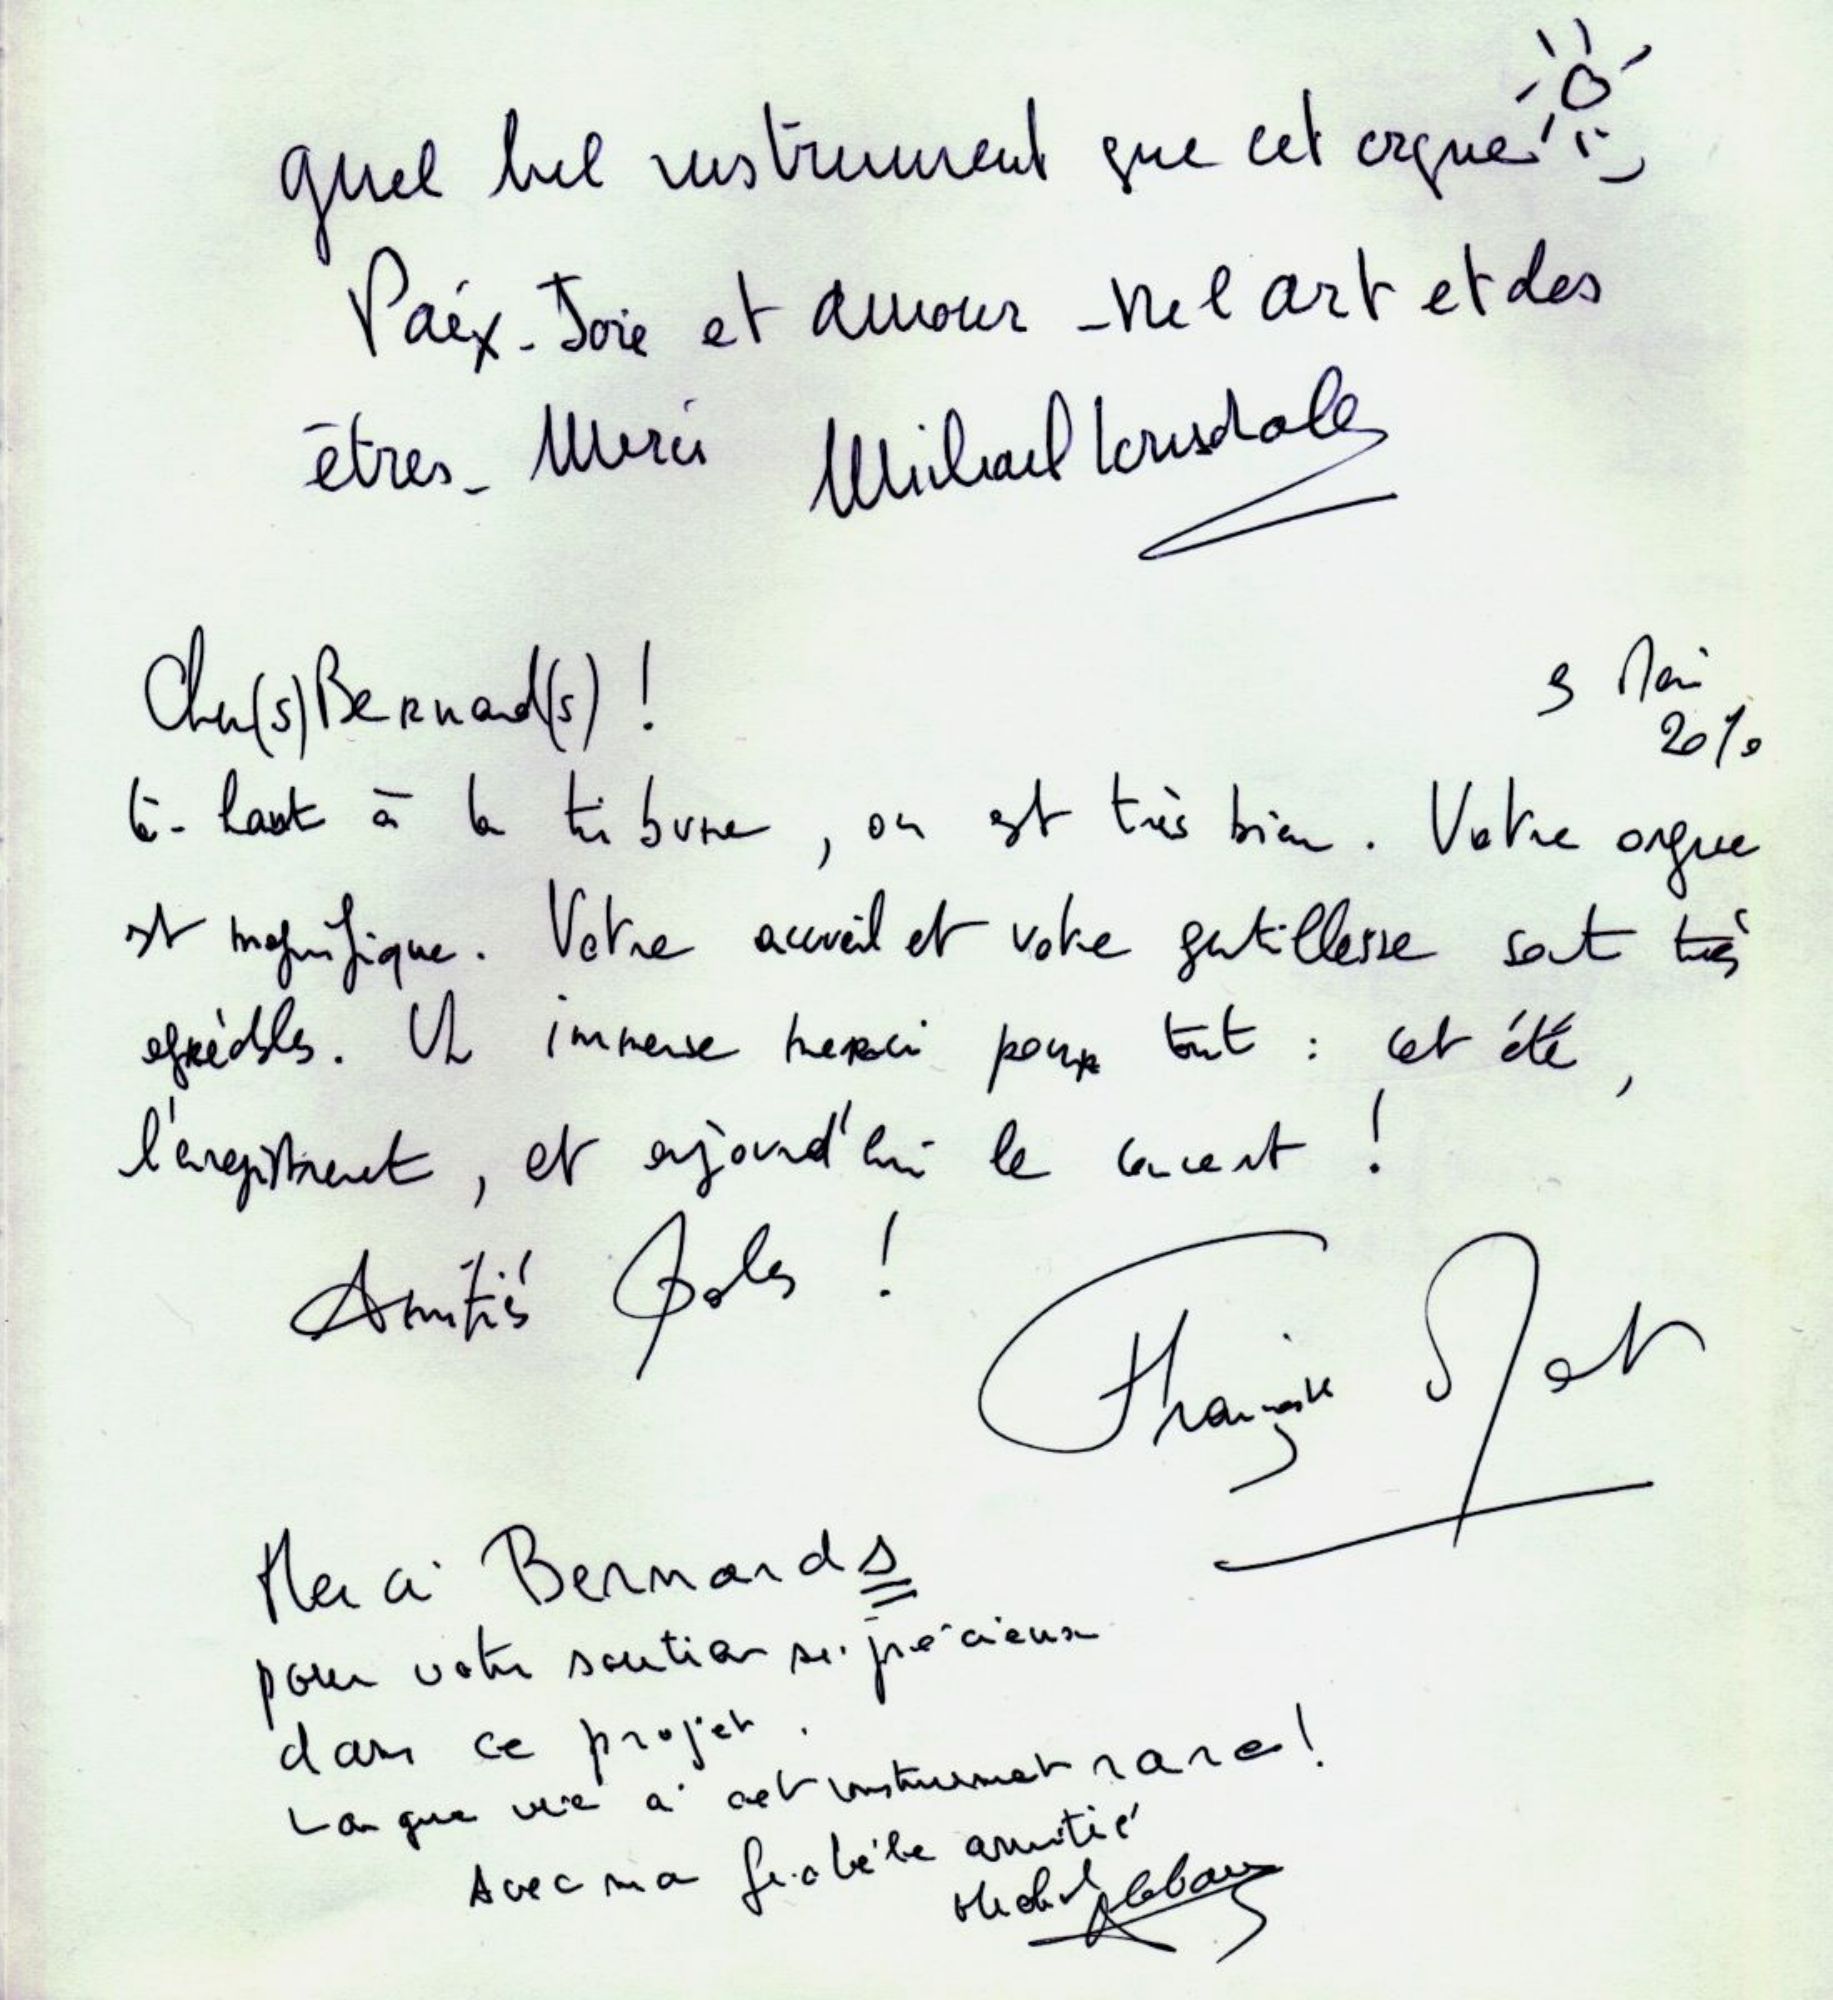 quel bel instrument que cet orgue!
Paix - Joie et amour - de l'art et des
êtres - Merci Michael Lonsdale
Cher(s) Bernard(s) !
3 Mai
2010
là-haut à la tribune, on est très bien. Votre orgue
est magnifique. Votre accueil et votre gentillesse sont très
agréables. Un immense merci pour tout : cet été,
l'enregistrement, et aujourd'hui le concert !
Amitiés !
Merci Bernards
pour votre soutien si précieux
dans ce projet.
Longue vie à cet instrument rare !
Avec ma fidèle amitié